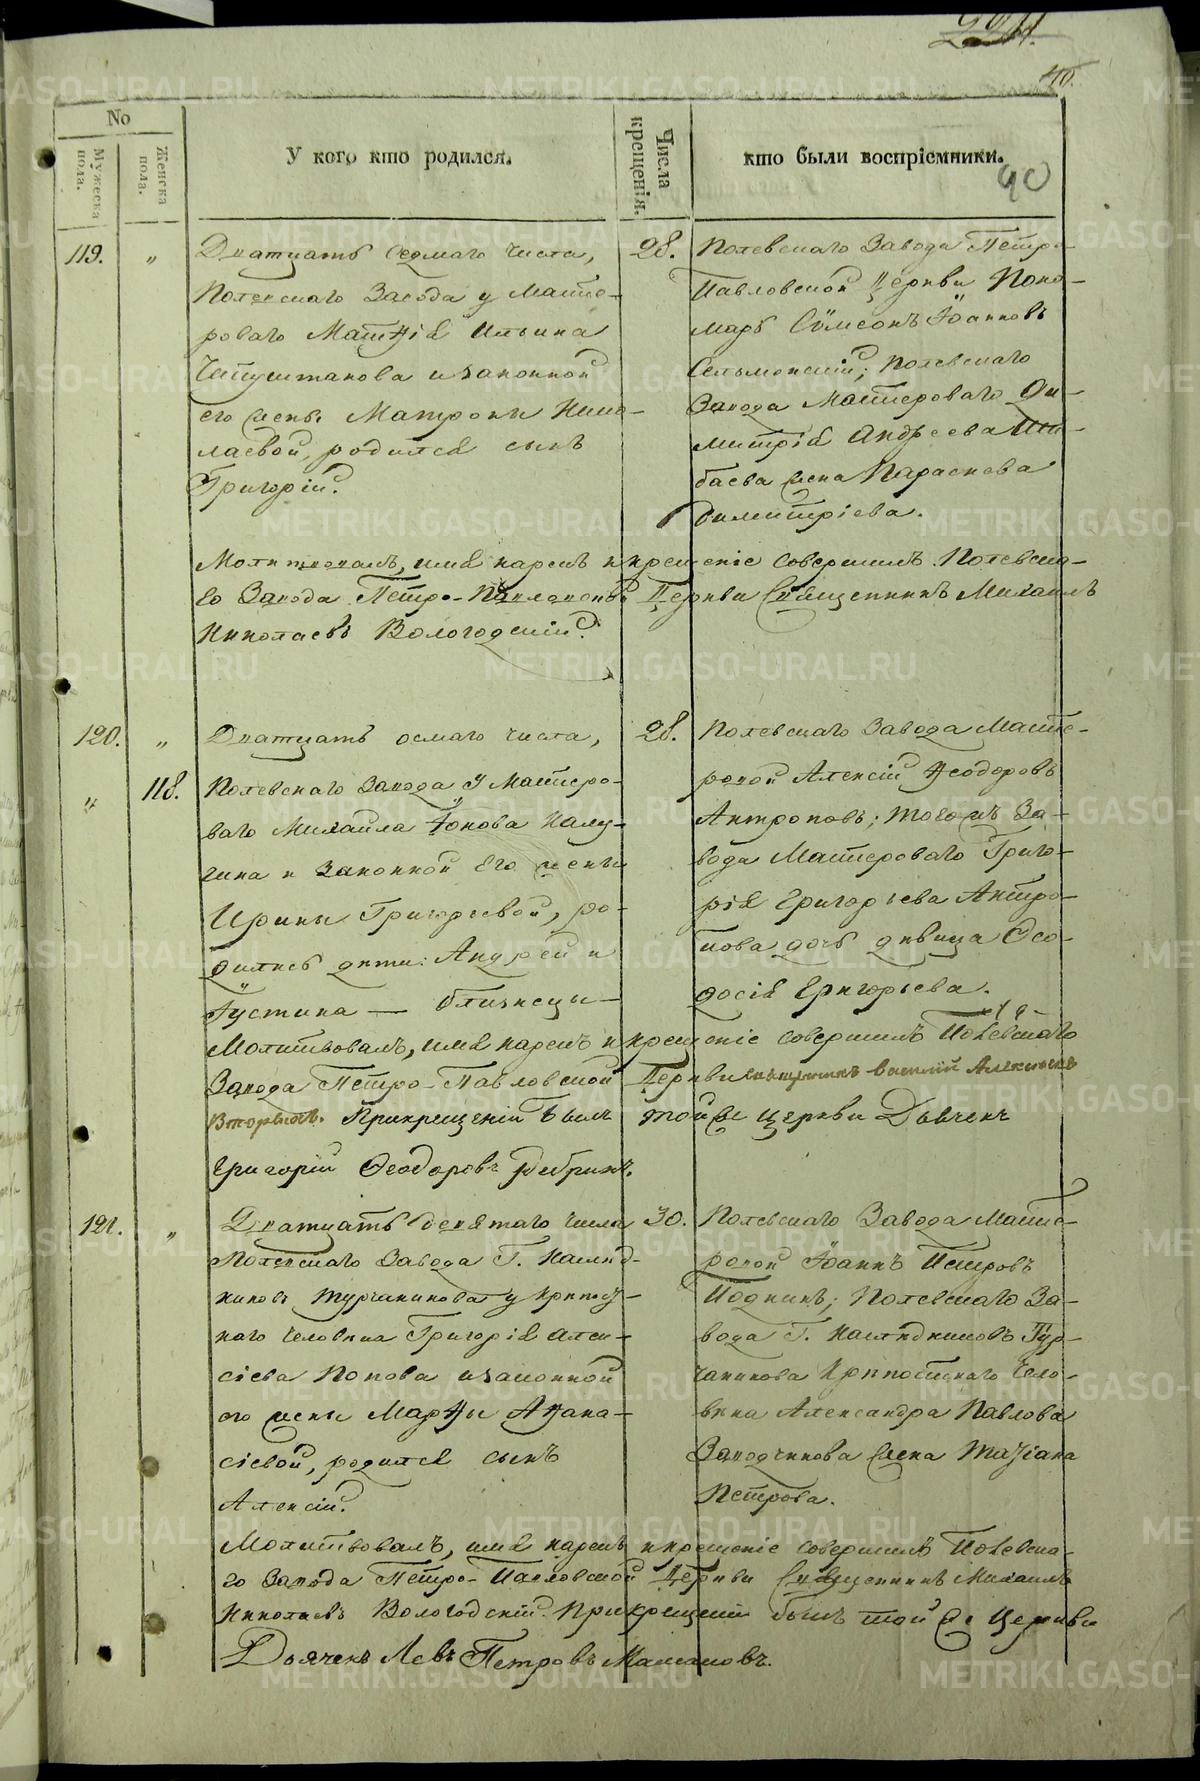 40.
No
Мужеска пола.
Женска пола.
У кого кто родился.
Числа крещенія.
кто были воспріемники.
40
119.
"
Дватцать седмаго числа,
Полевскаго Завода у Масте-
роваго Матѳіа Ильина
его жены Матроны Нико-
лаевой, родился сынъ
Григорій.
28.
Полевскаго Завода Петро-
Павловской Церкви Поно-
марь Сѵмеонъ Іоанновъ
Полевскаго
Завода Мастероваго Ди-
митріа Андреева Ши-
баева жена Параскева
Димитріева.
Молитвовалъ, имя нарекъ и крещеніе совершилъ Полевска-
го Завода Петро-Павловской Церкви Священникъ Михаилъ
Николаевъ Вологодскій.
120.
"
Дватцать осмаго числа,
"
118.
Полевскаго Завода у Мастеро-
ваго Михаила Іонова Калу-
гина и законной его жены
Ирины Григорьевой, ро-
дились дети: Андрей и
Іустина — близнецы —
28.
Полевскаго Завода Масте-
ровой Алексій Ѳеодоровъ
Антроповъ; тогожъ За-
вода Мастероваго Григо-
рія Григорьева Антро-
пова дочь девица Ѳео-
досія Григорьева.
Молитвовалъ, имя нарекъ и крещеніе совершилъ Полевскаго
Завода Петро-Павловской Церкви священникъ Василій Алексеевъ
Вторыхъ. При крещеніи былъ той же церкви Дьячекъ
Григорій Ѳеодоровъ
121.
"
Дватцать девятаго числа
Полевскаго Завода Г. Наслед-
никовъ Турчанинова у крепост-
наго человека Григорія Алек-
сіева Попова и законной
его жены Марѳы Аѳана-
сіевой, родился сынъ
Алексій.
30.
Полевскаго Завода Масте-
ровой Іоаннъ Петровъ
Полевскаго За-
вода Г. Наследниковъ Тур-
чанинова крепостнаго чело-
века Александра Павлова
жена Татіана
Петрова.
Молитвовалъ, имя нарекъ и крещеніе совершилъ Полевска-
го Завода Петро-Павловской Церкви Священникъ Михаилъ
Николаевъ Вологодскій. При крещеніи былъ той же Церкви
Дьячекъ Левъ Петровъ
METRIKI.GASO-URAL.RU